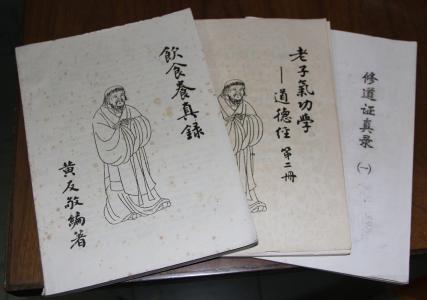 飲食養真録
黄友敬編著
老子氣功學
——道德径 第二冊
修道证真录
(一)